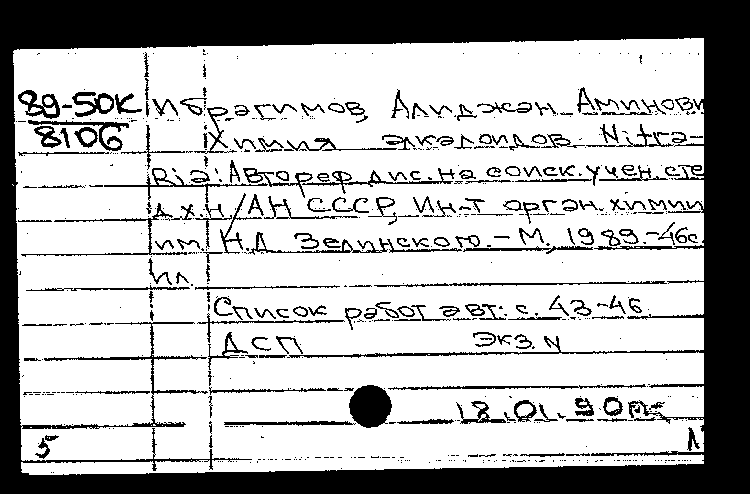 89-50к
8106
Ибрагимов, Алиджан Аминови
Химия алкалоидов Nitra-
Ria: Автореф дис. на соиск. учен. сте
д.х.н / АН СССР, Ин-т орган. химии
им. Н.Д Зелинского. – М., 1989. – 46с.
ил.
Список работ авт: с. 43-46.
ДСП экз N
18.01.90
5